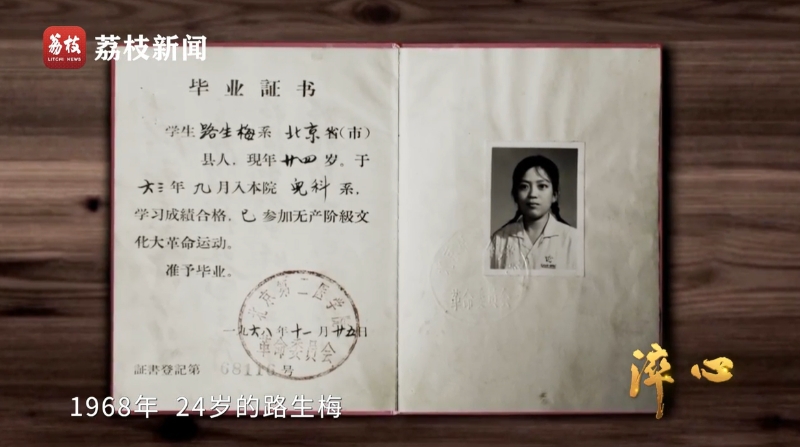 荔枝
LITCHI NEWS
荔枝新闻
毕业証书
学生 路生梅 系 北京 省(市)
县人，现年 廿四 岁。于
六三 年 九 月入本院 児科 系，
学习成績合格，已 参加无产阶級文
化大革命运动。
准予毕业。
北京第二医学院
革命委员会
一九六八年十一月廿五日
証書登記第 68116 号
革命委员会
1968年 24岁的路生梅
淬心